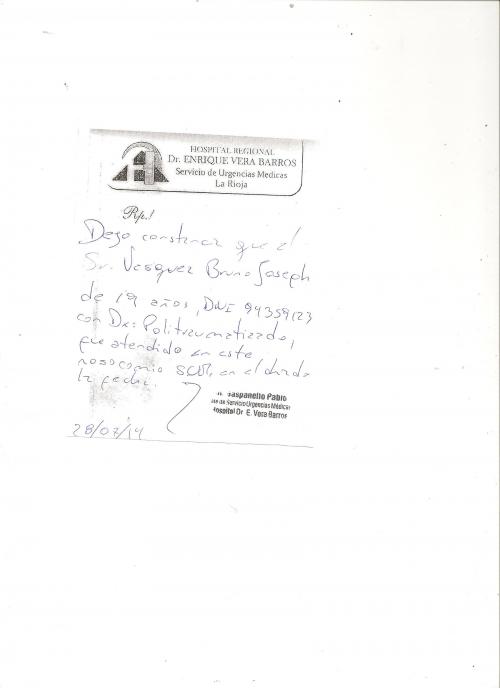 HOSPITAL REGIONAL
Dr. ENRIQUE VERA BARROS
Servicio de Urgencias Medicas
La Rioja
Rp.!
Dejo constancia que el
Sr. Vasquez Bruno Joseph
de 19 años, DNI 94359123
con Dx: Politraumatizado,
fue atendido en este
nosocomio en el dia de
la fecha.
Gaspanello Pablo
de Servicio Urgencias Médicas
Hospital Dr. E. Vera Barros
28/07/14